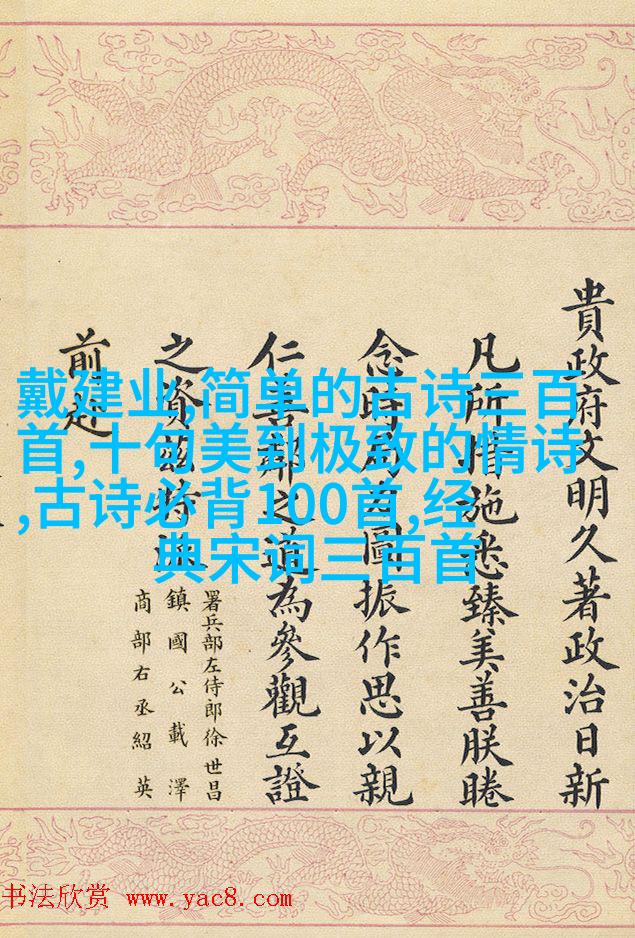 貴政府文明久著政治日新
凡所措施悉臻美善朕睠
念時局力圖振作思以親
仁善鄰之道為參觀互證
之資茲特派
署兵部左侍郎徐世昌
鎮國公載澤
商部右丞紹英
前赴
戴建业,简单的古诗三百
首,十句美到极致的情诗
,古诗必背100首,经
典宋词三百首
书法欣赏 www.yac8.com